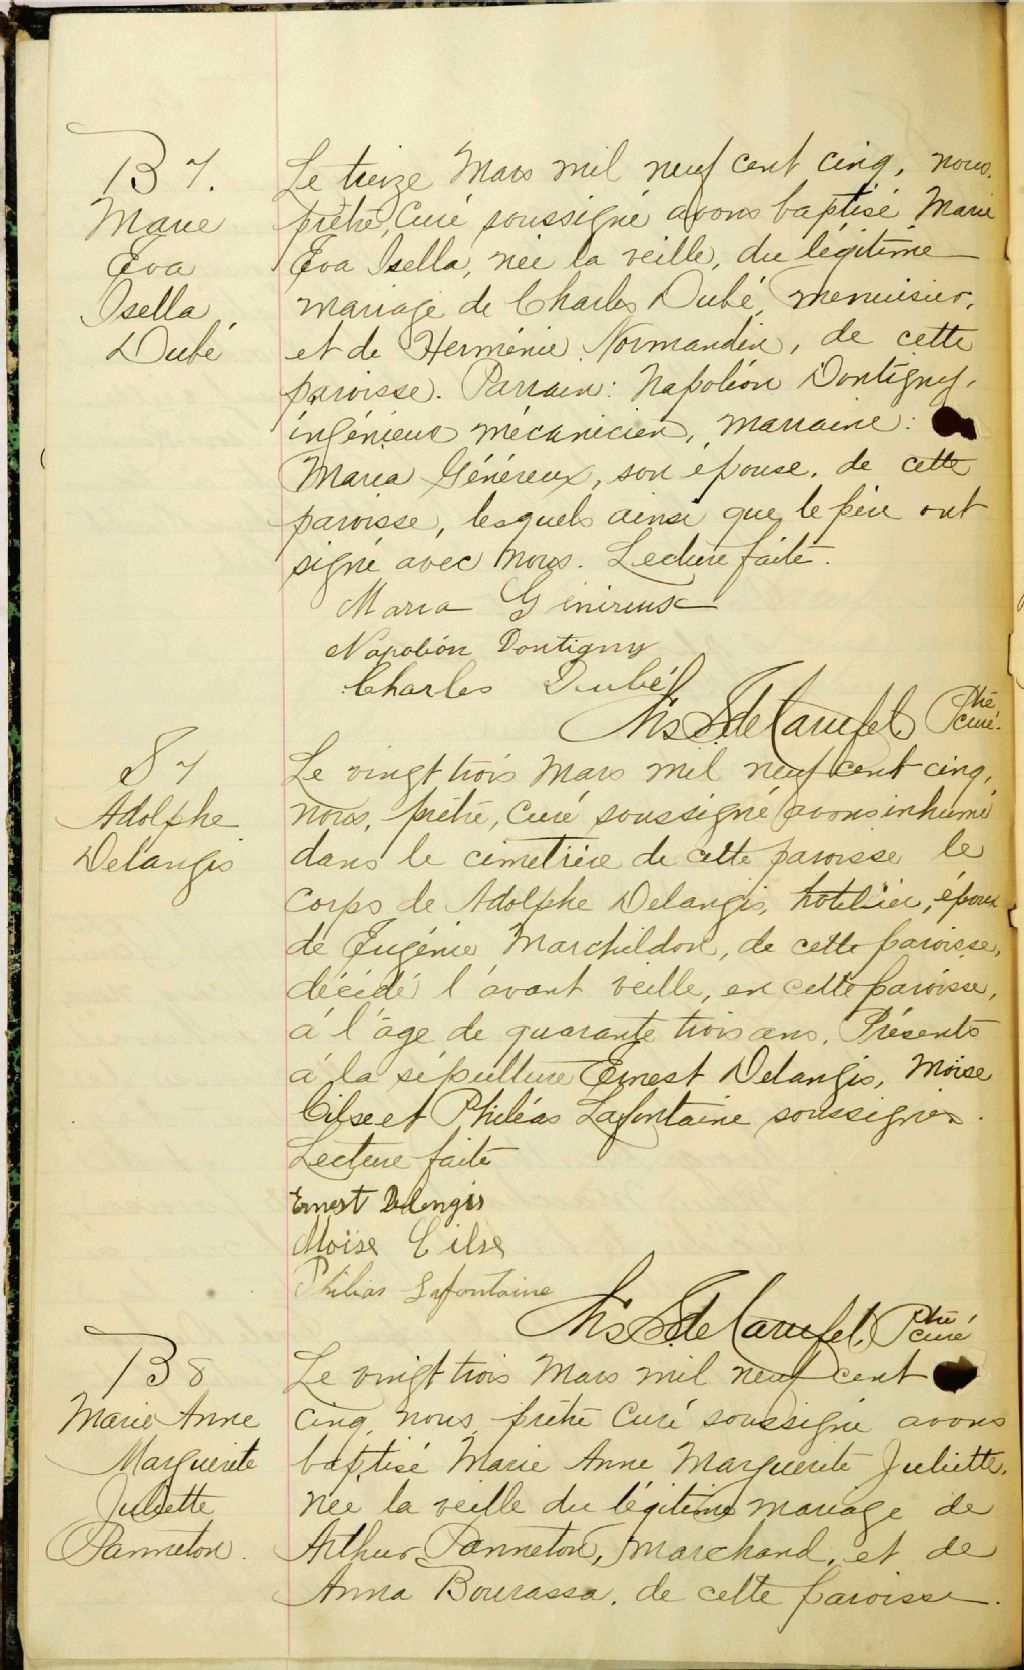 B 7.
Marie
Eva
Isella
Dubé
Le treize Mars mil neuf cent cinq, nous,
prêtre, Curé soussigné avons baptisé Marie
Eva Isella, née la veille, du légitime
mariage de Charles Dubé, menuisier,
et de Herménie Normandin, de cette
paroisse. Parrain: Napoléon Dontigny,
ingénieur mécanicien, marraine:
Maria Généreux, son épouse, de cette
paroisse, lesquels ainsi que le père ont
signé avec nous. Lecture faite.
Maria Généreux
Napoléon Dontigny
Charles Dubé
Chs S. de Carufel, Ptre curé.
S 7
Adolphe
Delangis
Le vingt trois Mars mil neuf cent cinq,
nous, prêtre, Curé soussigné avons inhumé
dans le cimetière de cette paroisse le
corps de Adolphe Delangis, hotelier, époux
de Eugénie Marchildon, de cette paroisse,
décédé l'avant veille, en cette paroisse,
à l'âge de quarante trois ans. Présents
à la sépulture Ernest Delangis, Moise
Cilse et Philéas Lafontaine soussignés.
Lecture faite
Ernest Delangis
Moïse Cilse
Philias Lafontaine
Chs S. de Carufel, Ptre curé
B 8
Marie Anne
Marguerite
Juliette
Panneton.
Le vingt trois Mars mil neuf cent
cinq, nous, prêtre Curé soussigné avons
baptisé Marie Anne Marguerite Juliette,
née la veille du légitime mariage de
Arthur Panneton, marchand, et de
Anna Bourassa, de cette paroisse.